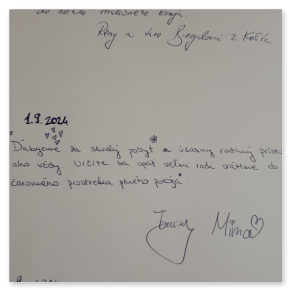 do tohto nádherného kraja.
Rény a Vero Begalovi z Košíc
1.9.2024
"Ďakujeme za skvelý pobyt a úžasný rodinný prístup
ako vždy. Určite sa opäť veľmi radi vrátime do
čarovného prostredia plného pokoja".
Miina